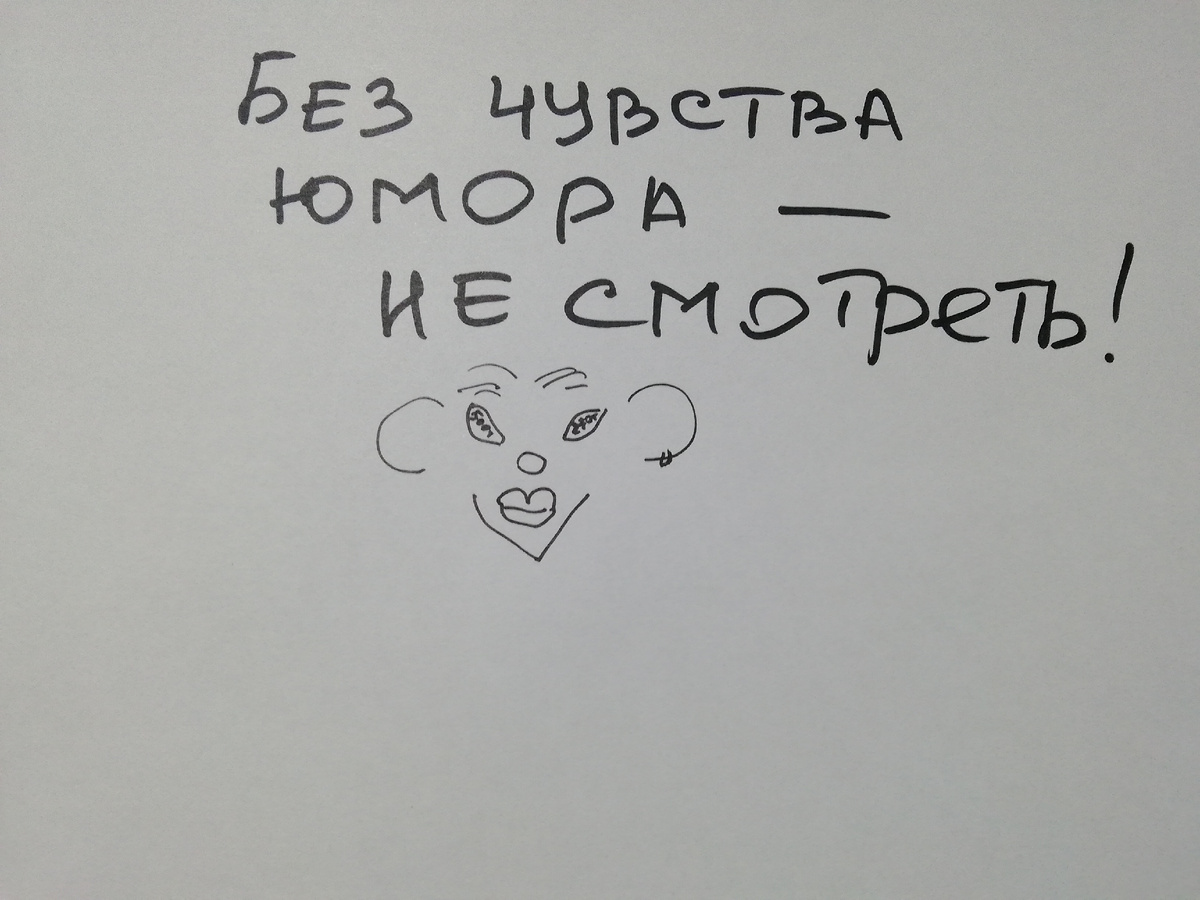 БЕЗ ЧУВСТВА
ЮМОРА —
НЕ СМОТРЕТЬ!